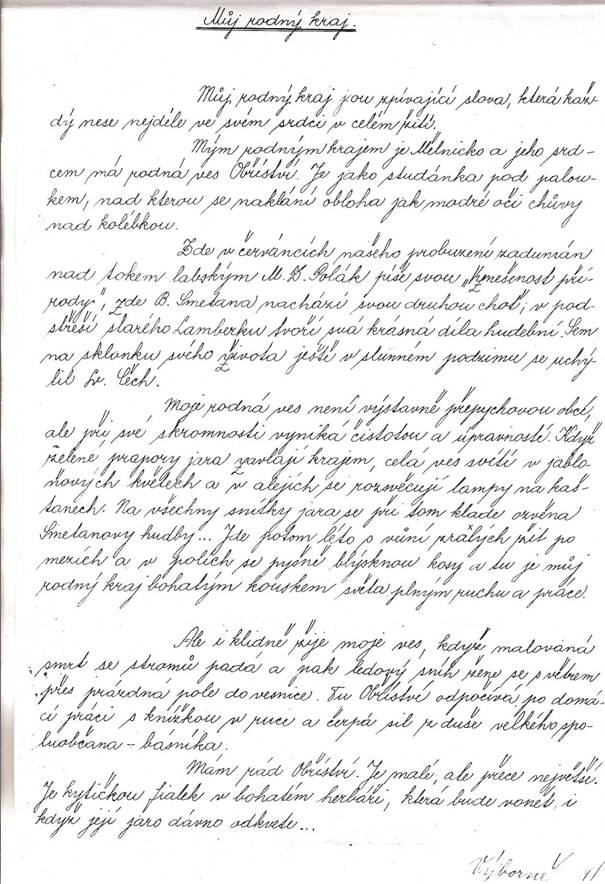 Můj rodný kraj.
Můj rodný kraj jsou zpívající slova, která kaž-
dý nese nejdéle ve svém srdci v celém žití.
Mým rodným krajem je Mělnicko a jeho srd-
cem má rodná ves Obříství. Je jako studánka pod palou-
kem, nad kterou se naklání obloha jak modré oči chůvy
nad kolébkou.
Zde v červáncích našeho probuzení zadumán
nad tokem labským M. Z. Polák píše svou „Vznešenost pří-
rody“, zde B. Smetana nachází svou druhou choť; v pod-
střeší starého Lamberku tvoří svá krásná díla hudební. Sem
na sklonku svého života ještě v slunném podzimu se uchý-
lil Sv. Čech.
Moje rodná ves není výstavně přepychovou obcí,
ale při své skromnosti vyniká čistotou a úpravností. Když
zelené prapory jara zavlají krajem, celá ves svítí v jablo-
ňových květech a v alejích se rozsvěcují lampy na kaš-
tanech. Na všechny snítky jara se při tom klade ozvěna
Smetanovy hudby... Jde potom léto s vůní zralých žit po
mezích a v polích se pyšně blýsknou kosy a tu je můj
rodný kraj bohatým kouskem světa plným ruchu a práce.
Ale i klidně žije moje ves, když malovaná
smrt se stromů padá a pak ledový sníh žene se s větrem
přes prázdná pole do vesnice. Tu Obříství odpočívá po domá-
cí práci s knížkou v ruce a čerpá sil z duše velkého spo-
luobčana - básníka.
Mám rád Obříství. Je malé, ale přece největší.
Je kytičkou fialek v bohatém herbáři, která bude vonět, i
když její jaro dávno odkvete...
Výborně